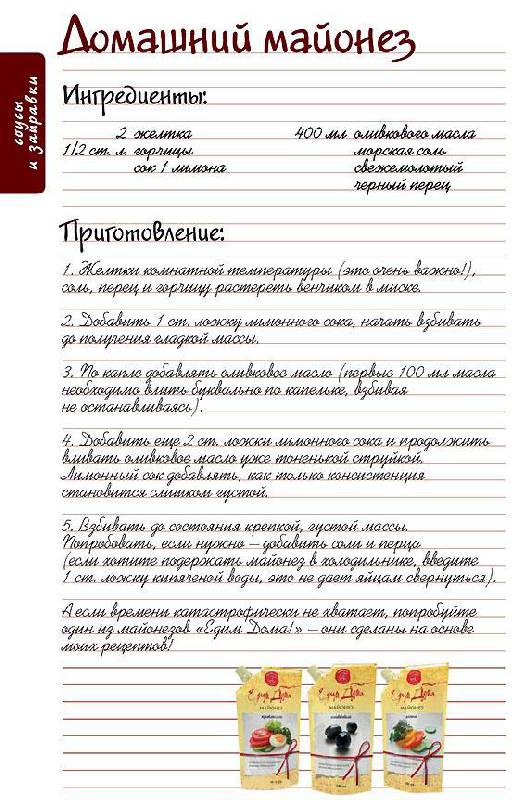 Домашний майонез
соусы
и заправки
Ингредиенты:
2 желтка
1/2 ст. л. горчицы
сок 1 лимона
400 мл оливкового масла
морская соль
свежемолотый
черный перец
Приготовление:
1. Желтки комнатной температуры (это очень важно!),
соль, перец и горчицу растереть венчиком в миске.
2. Добавить 1 ст. ложку лимонного сока, начать взбивать
до получения гладкой массы.
3. По капле добавлять оливковое масло (первые 100 мл масла
необходимо влить буквально по капельке, взбивая
не останавливаясь).
4. Добавить еще 2 ст. ложки лимонного сока и продолжить
вливать оливковое масло уже тоненькой струйкой.
Лимонный сок добавлять, как только консистенция
становится слишком густой.
5. Взбивать до состояния крепкой, густой массы.
Попробовать, если нужно – добавить соли и перца
(если хотите подержать майонез в холодильнике, введите
1 ст. ложку кипяченой воды, это не дает яйцам свернуться).
А если времени катастрофически не хватает, попробуйте
один из майонезов «Едим Дома!» – они сделаны на основе
моих рецептов!
Едим Дома!
МАЙОНЕЗ
Едим Дома!
МАЙОНЕЗ
оливковый
Едим Дома!
МАЙОНЕЗ